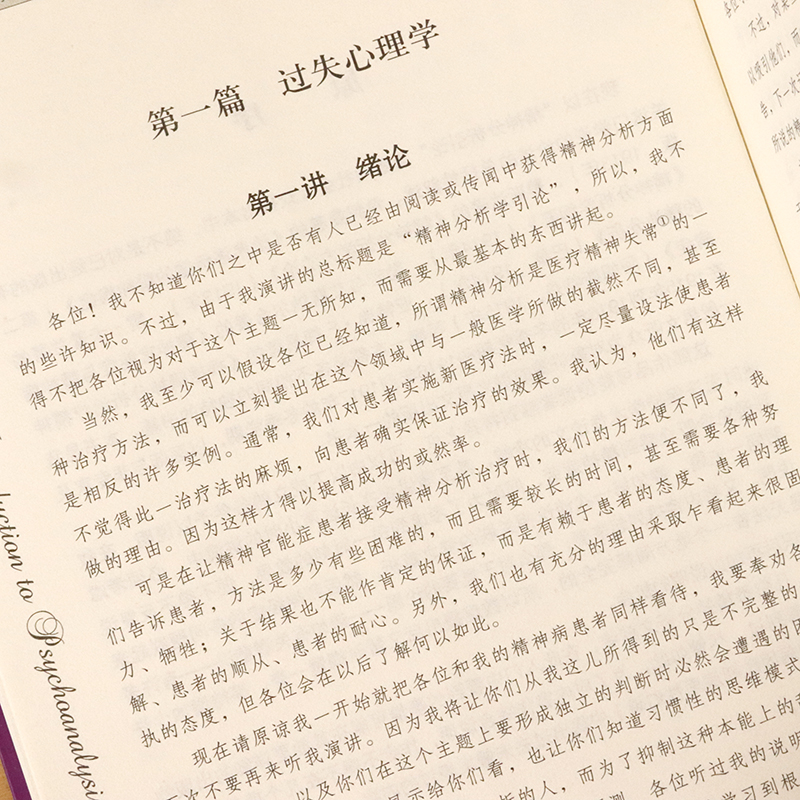 第一篇 过失心理学
第一讲 绪论
各位！我不知道你们之中是否有人已经由阅读或传闻中获得精神分析方面
的些许知识。不过，由于我演讲的总标题是“精神分析学引论”，所以，我不
得不把各位视为对于这个主题一无所知，而需要从最基本的东西讲起。
当然，我至少可以假设各位已经知道，所谓精神分析是医疗精神失常①的一
种治疗方法，而可以立刻提出在这个领域中与一般医学所做的截然不同，甚至
是相反的许多实例。通常，我们对患者实施新医疗法时，一定尽量设法使患者
不觉得此一治疗法的麻烦，向患者确实保证治疗的效果。我认为，他们有这样
做的理由。因为这样才得以提高成功的或然率。
可是在让精神官能症患者接受精神分析治疗时，我们的方法便不同了，我
们告诉患者，方法是多少有些困难的，而且需要较长的时间，甚至需要各种努
力、牺牲；关于结果也不能作肯定的保证，而是有赖于患者的态度、患者的理
解、患者的顺从、患者的耐心。另外，我们也有充分的理由采取乍看起来很固
执的态度，但各位会在以后了解何以如此。
现在请原谅我一开始就把各位和我的精神病患者同样看待，我要奉劝各
次不要再来听我演讲。因为我将让你们从我这儿所得到的只是不完整的
以及你们在这个主题上要形成独立的判断时必然会遭遇的困
示给你们看，也让你们知道习惯性的思维模式
的人，而为了抑制这种本能上的
各位听过我的说明
学习到根
uction to Psychoanalysis
各位
不过，对某
以吸引他们，而
告，下一次
所说的精